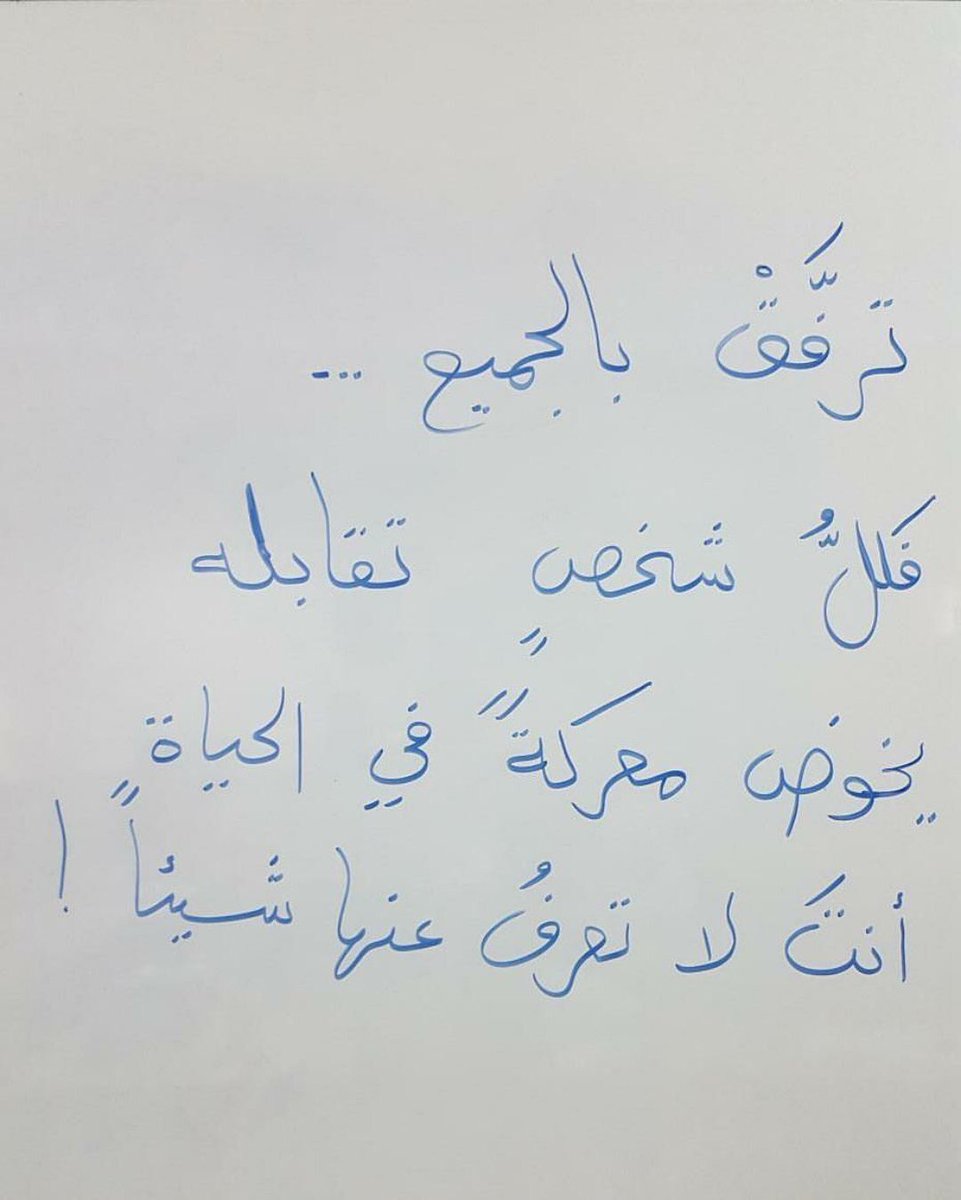 ترفَّقْ بالجميع ...
فكلُّ شخصٍ تقابله
يخوض معركةً في الحياة
أنتَ لا تعرفُ عنها شيئاً !